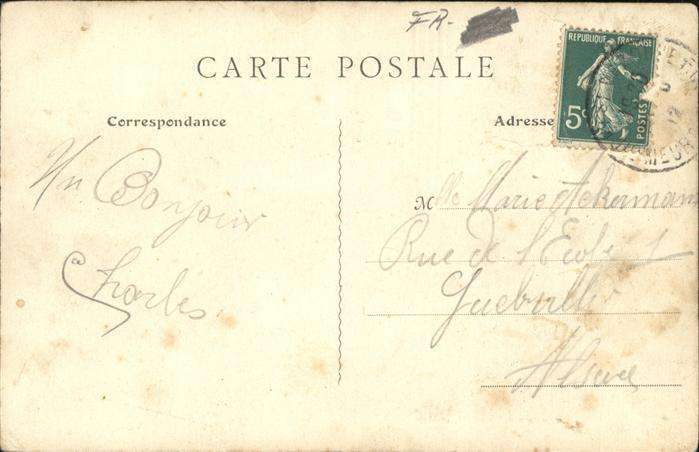 FR.
CARTE POSTALE
REPUBLIQUE FRANÇAISE
5c
POSTES
Correspondance
Adresse
Un Bonjour
Charles
Mlle Marie Ackermann
Rue de l'Ecole 1
Guebwiller
Alsace